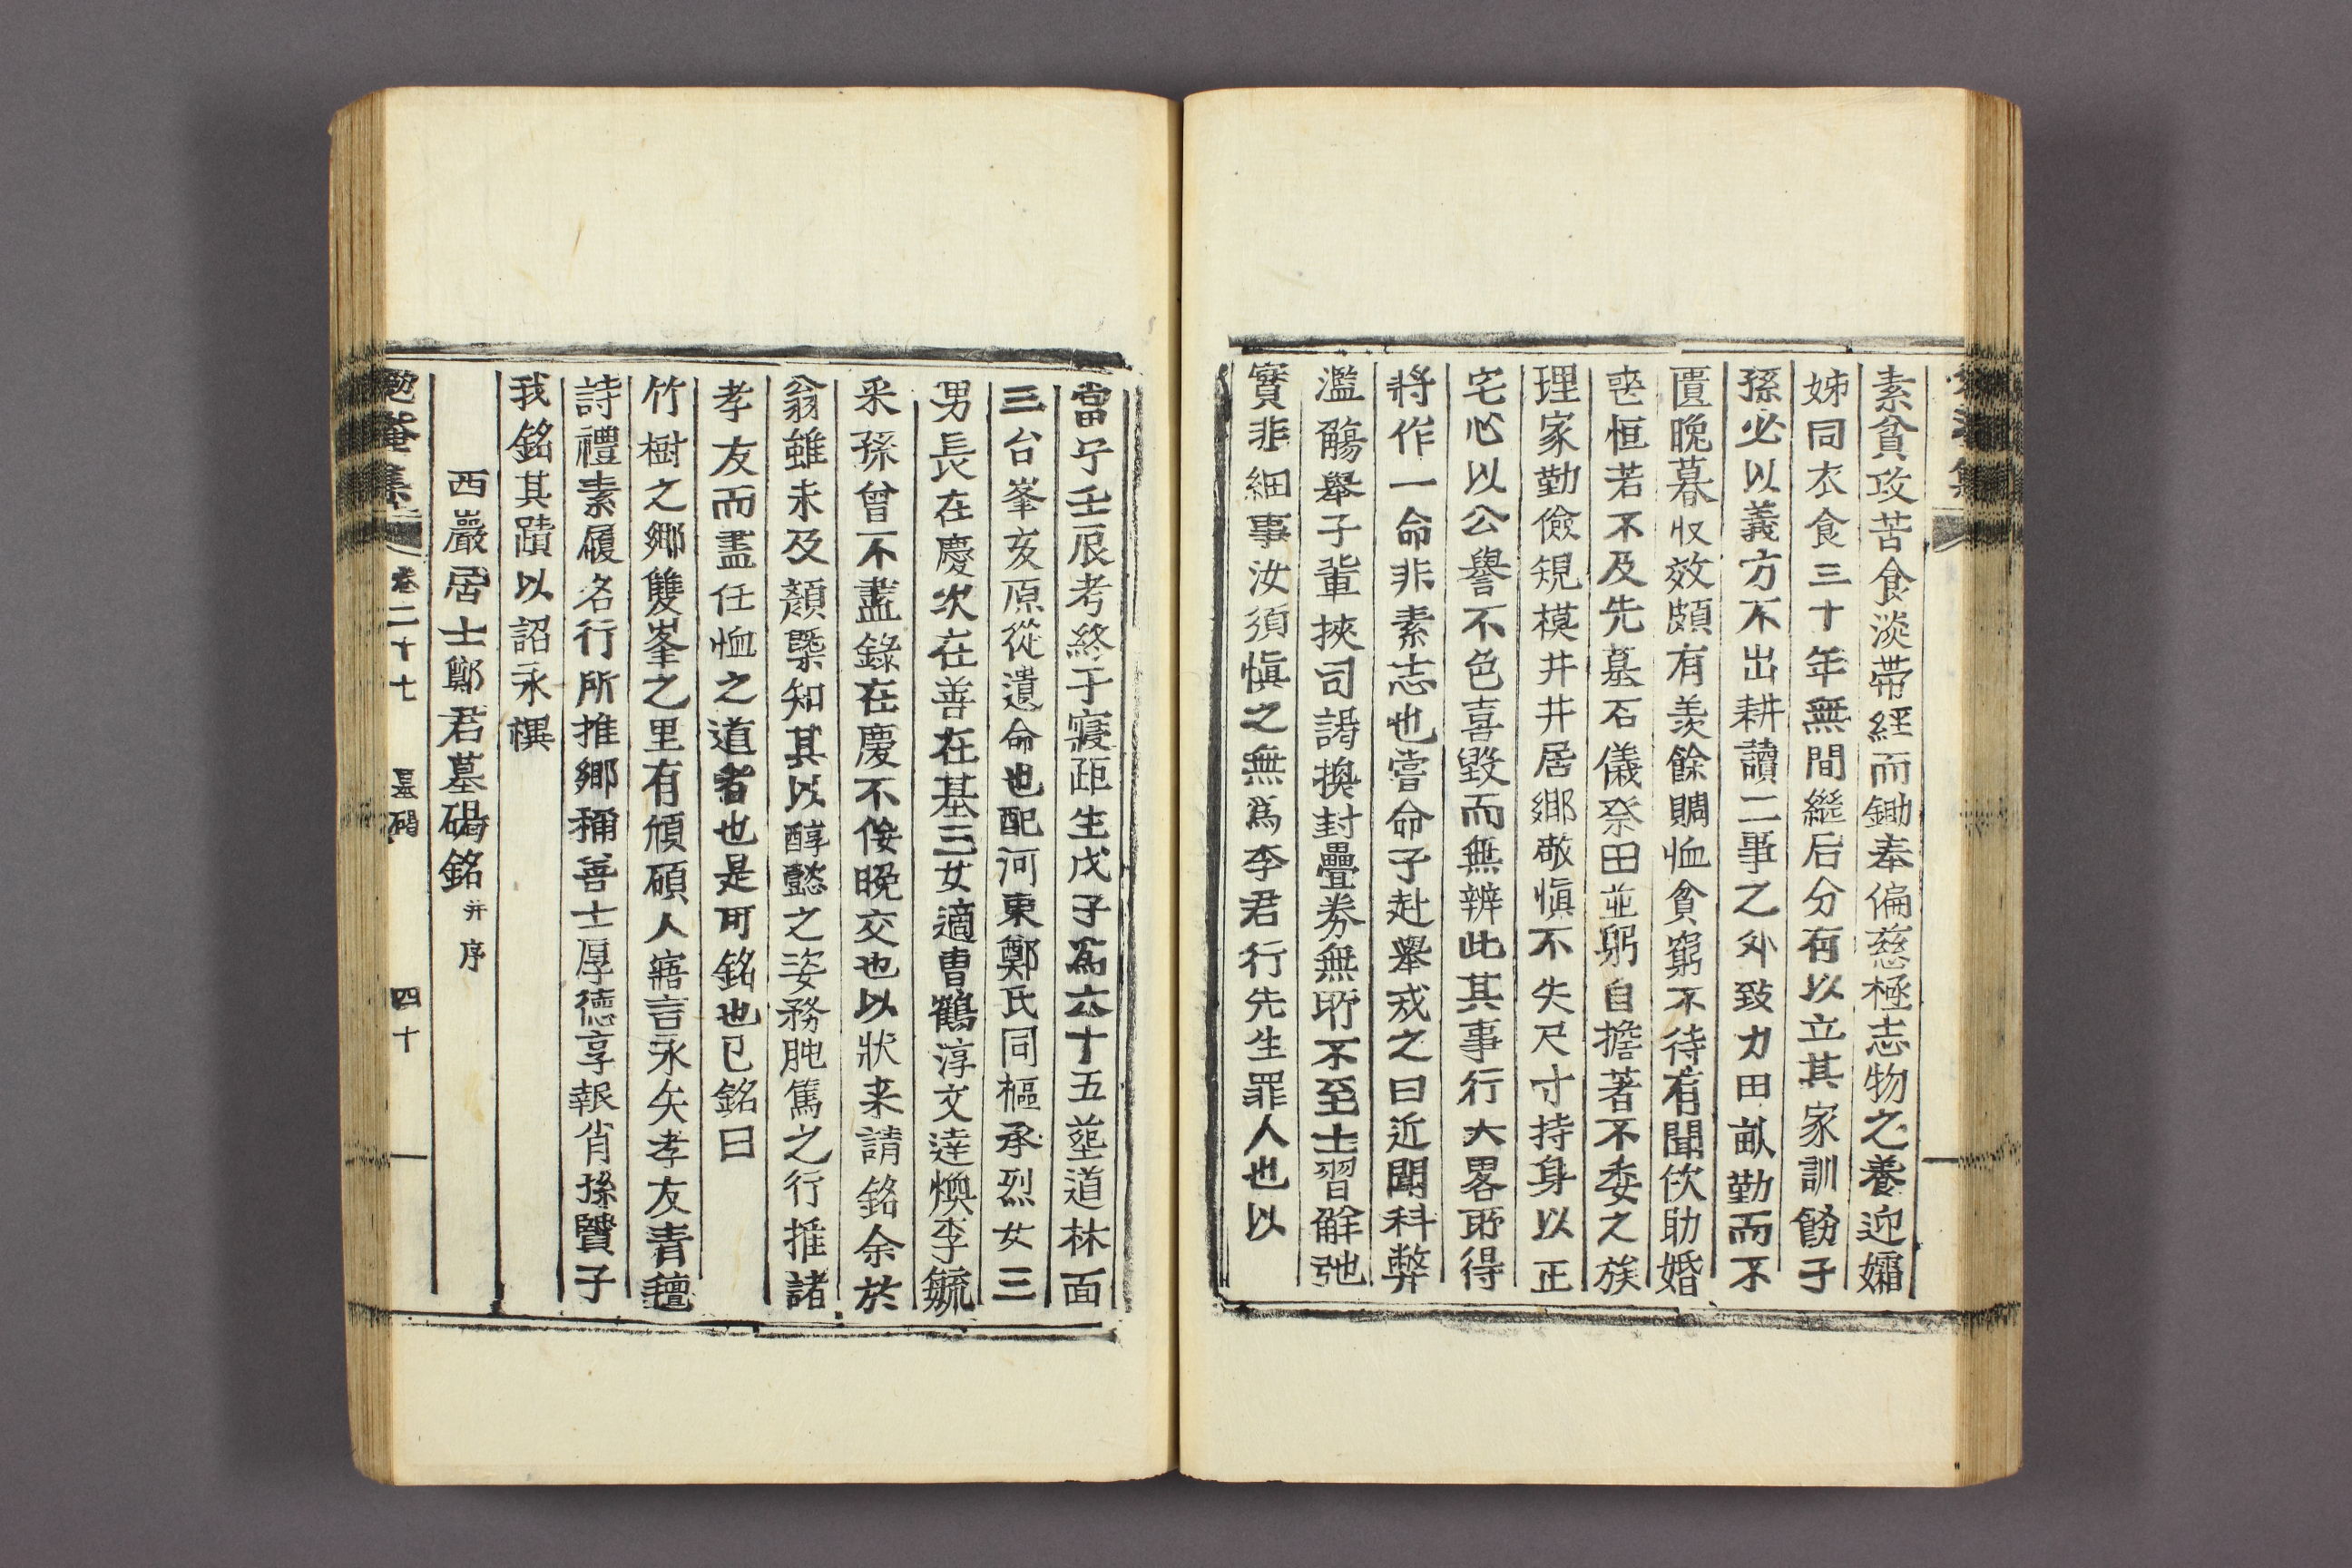 素貧攻苦食淡帶經而鋤奉偏慈極志物之養迎孀
姊同衣食三十年無間継后分有以立其家訓飭子
孫必以義方不出耕讀二事之外致力田畒勤而不
匱晩暮收效頗有羡餘賙恤貧窮不待有聞佽助婚
喪恒若不及先墓石儀祭田並躬自擔著不委之族
理家勤儉規模井井居鄉敬愼不失尺寸持身以正
宅心以公譽不色喜毀而無辨此其事行大畧所得
將作一命非素志也嘗命子赴擧戒之曰近聞科弊
濫觴擧子輩挾司謁換封疊券無所不至士習觧弛
實非細事汝須愼之無爲李君行先生罪人也以
當宁壬辰考終于寢距生戊子爲六十五塟道林面
三台峯亥原從遺命也配河東鄭氏同樞承烈女三
男長在慶次在善在基三女適曺鶴淳文達煥李毓
采孫曾不盡錄在慶不侫晩交也以狀来請銘余於
翁雖未及顏槩知其以醇懿之姿務肫篤之行推諸
孝友而盡任恤之道者也是可銘也已銘曰
竹樹之鄉雙峯之里有頎碩人寤言永矢孝友青氊
詩禮素履名行所推鄉稱善士厚德享報肖孫賢子
我銘其蹟以詔永禩
西巖居士鄭君墓碣銘并序
勉菴集 卷二十七 墓碣 四十